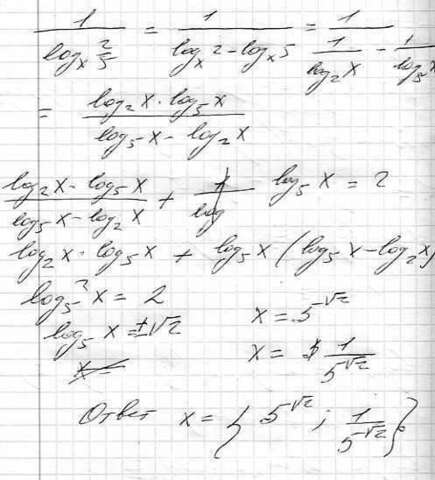 1/(log_x 2/5) = 1/(log_x 2 - log_x 5) = 1/(1/(log_2 x) - 1/(log_5 x))
= (log_2 x · log_5 x)/(log_5 x - log_2 x)
(log_2 x - log_5 x)/(log_5 x - log_2 x) + log_5 x = 2
log_2 x · log_5 x + log_5 x (log_5 x - log_2 x)
log_5^2 x = 2
log_5 x = ±√2 x = 5^{-√2}
x = 1/(5^{-√2})
Ответ x = { 5^{-√2} ; 1/(5^{-√2}) }